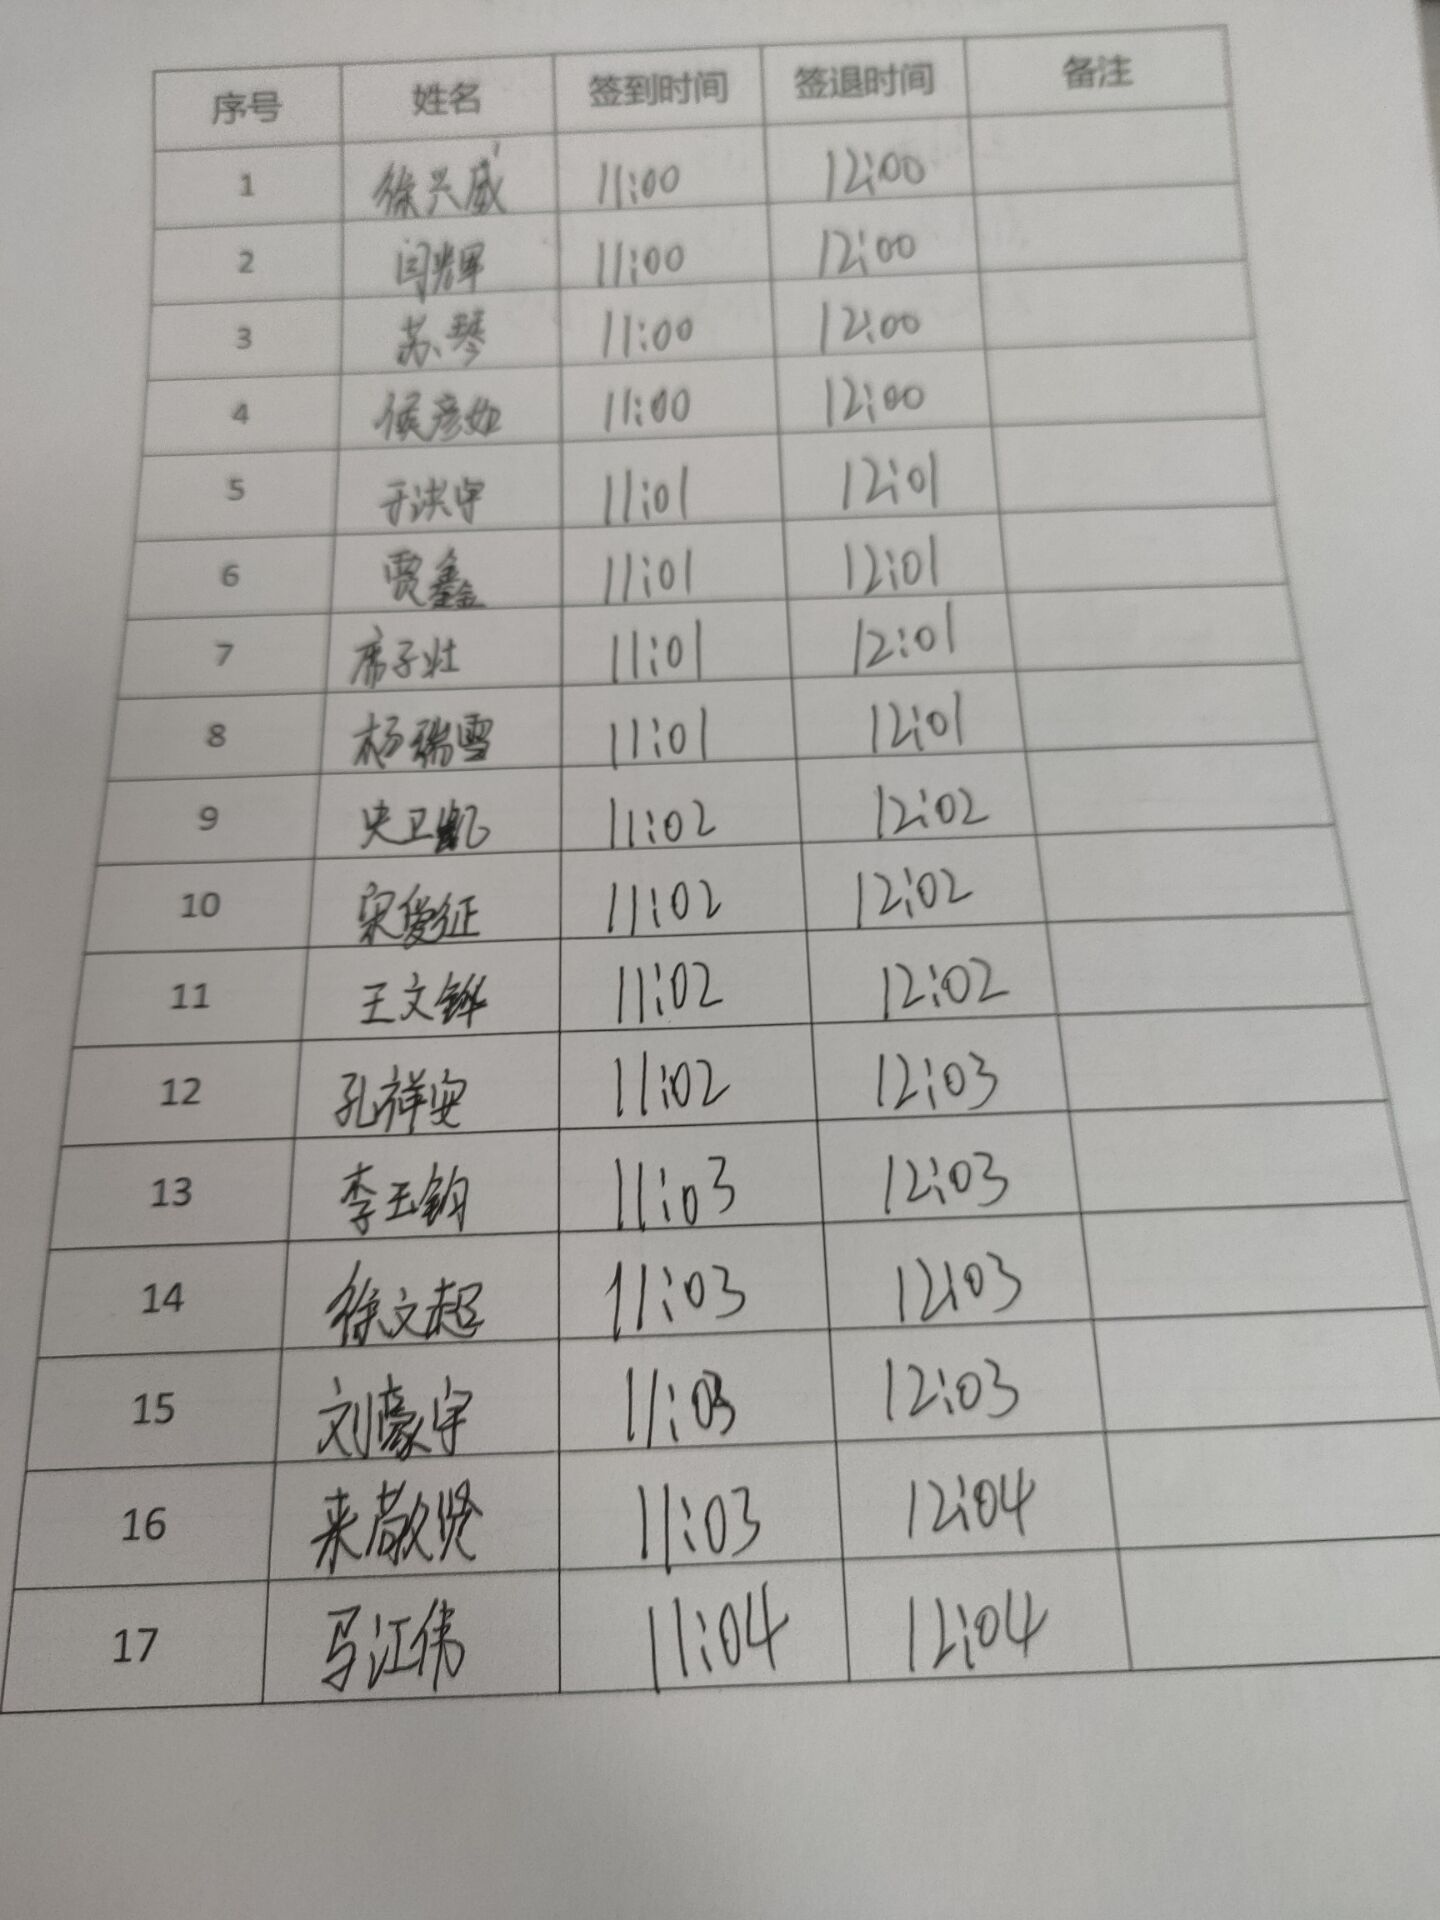 序号 姓名 签到时间 签退时间 备注
1 徐兴威 11:00 12:00
2 闫辉 11:00 12:00
3 苏琴 11:00 12:00
4 侯彦如 11:00 12:00
5 于洪宇 11:01 12:01
6 贾鑫 11:01 12:01
7 席子壮 11:01 12:01
8 杨瑞雪 11:01 12:01
9 史卫凯 11:02 12:02
10 宋俊征 11:02 12:02
11 王文铧 11:02 12:02
12 孔祥安 11:02 12:03
13 李玉钧 11:03 12:03
14 徐文超 11:03 12:03
15 刘豪宇 11:03 12:03
16 来敬贤 11:03 12:04
17 马江伟 11:04 12:04